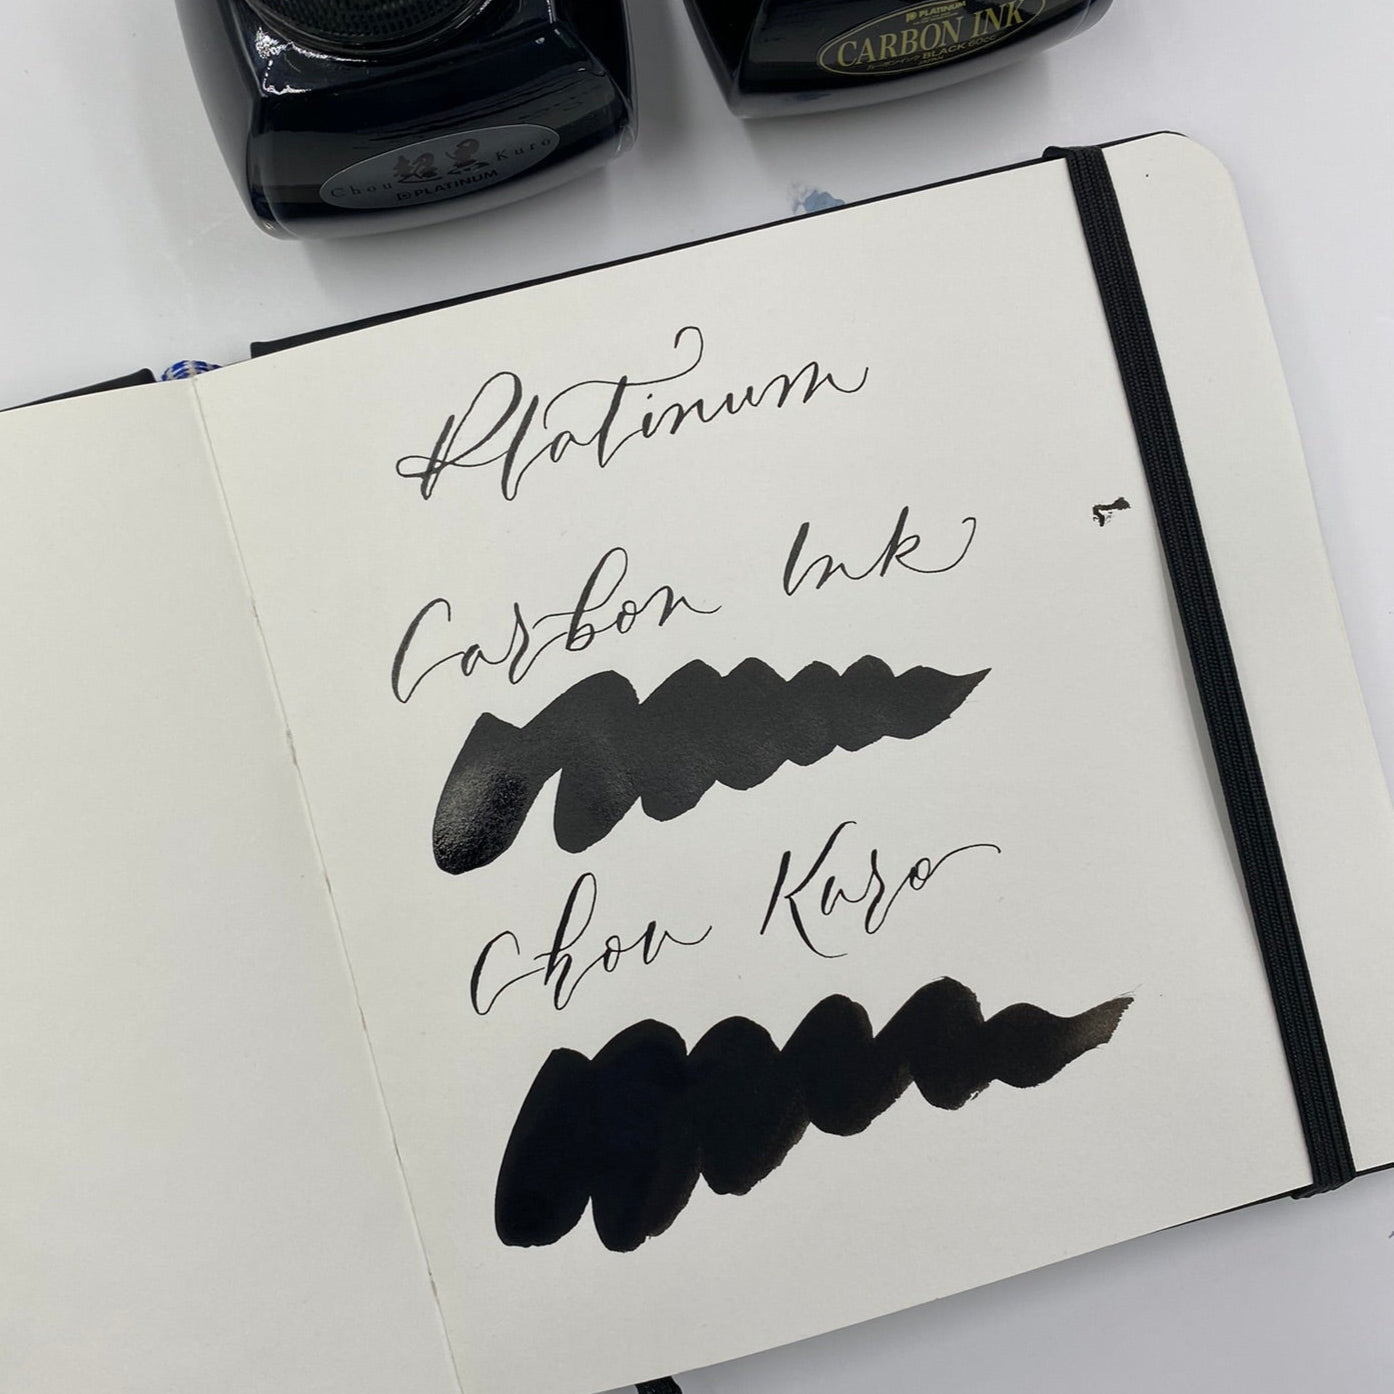 PLATINUM
CARBON INK
BLACK 60cc
Chou 超黒 Kuro
PLATINUM
Platinum
Carbon Ink
Chou Kuro